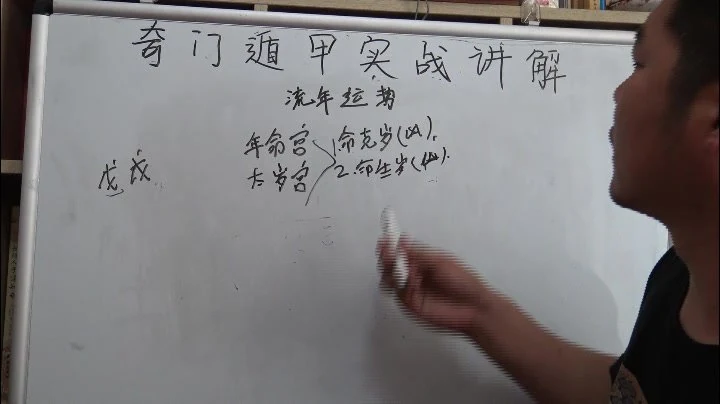 奇门遁甲实战讲解
流年运势
年命宫 1.命克岁(凶).
太岁宫 2.命生岁(凶).
戊戌